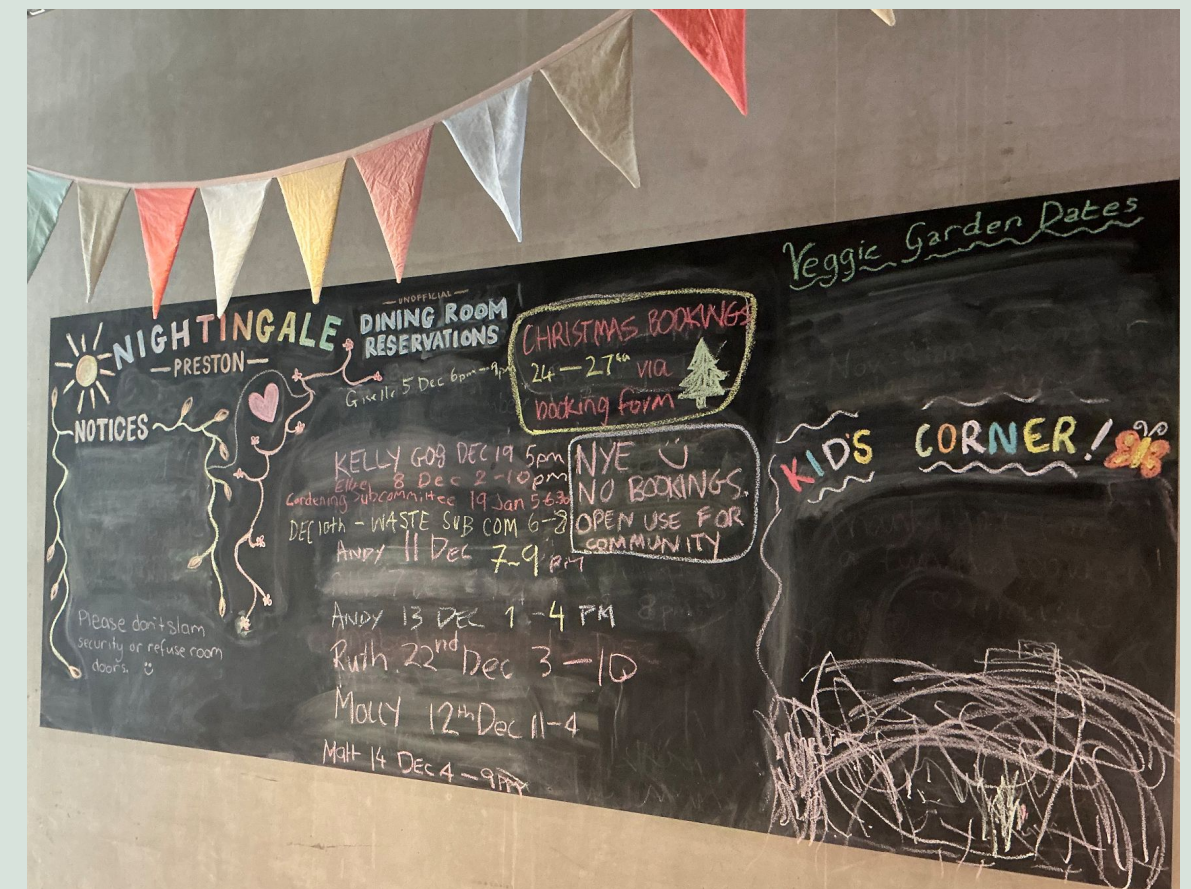 NIGHTINGALE
—PRESTON—
NOTICES
Please don't slam
security or refuse room
doors.
—UNOFFICIAL—
DINING ROOM
RESERVATIONS
5 Dec 6pm-9pm
KELLY G09 DEC 19 5pm
8 Dec 2-10pm
Gardening Subcommittee 19 Jan 5-6:30
DEC 10th - WASTE SUB COM 6-8
ANDY 11 DEC 7-9 PM
ANDY 13 DEC 1-4 PM
Ruth 22nd Dec 3-10
MOLLY 12th Dec 11-4
Matt 14 DEC 4-9pm
CHRISTMAS BOOKINGS
24-27th via
booking form
NYE
NO BOOKINGS.
OPEN USE FOR
COMMUNITY
Veggie Garden Dates
KID'S CORNER!